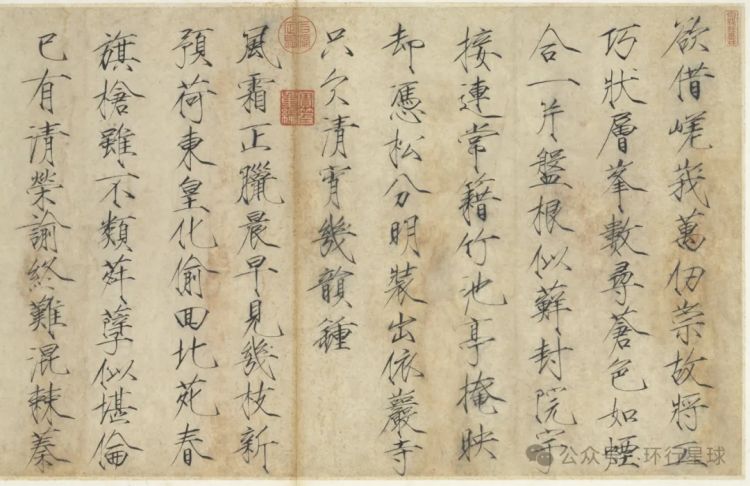 欲借嵯峩萬仞崇故將工
巧狀層峯數尋蒼色如煙
合一片盤根似蘚封院宇
接連常籍竹池亭掩映
却憑松分明裝出依巖寺
只欠清宵幾韻鍾
風霜正臘晨早見幾枝新
預荷東皇化偷囬北苑春
旗槍雖不類荈孽似堪倫
已有清榮諭終難混棘蓁
公众号·环行星球